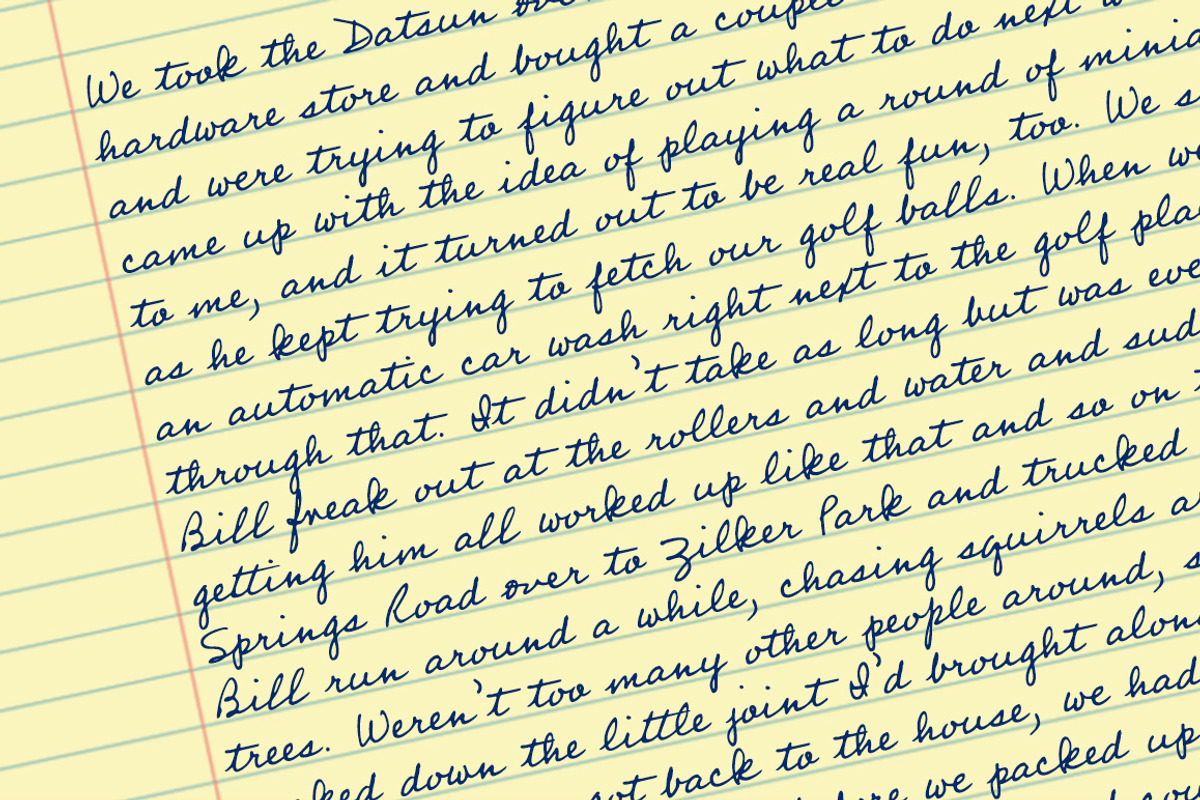 We took the Datsun
hardware store and bought a couple
and were trying to figure out what to do next
came up with the idea of playing a round of
to me, and it turned out to be real fun, too. We
as he kept trying to fetch our golf balls. When
an automatic car wash right next to the golf
through that. It didn't take as long but was
Bill freak out at the rollers and water and
getting him all worked up like that and so on
Springs Road over to Zilker Park and trucked
Bill run around a while, chasing squirrels
trees. Weren't too many other people around,
down the little joint I'd brought
back to the house, we had
we packed up